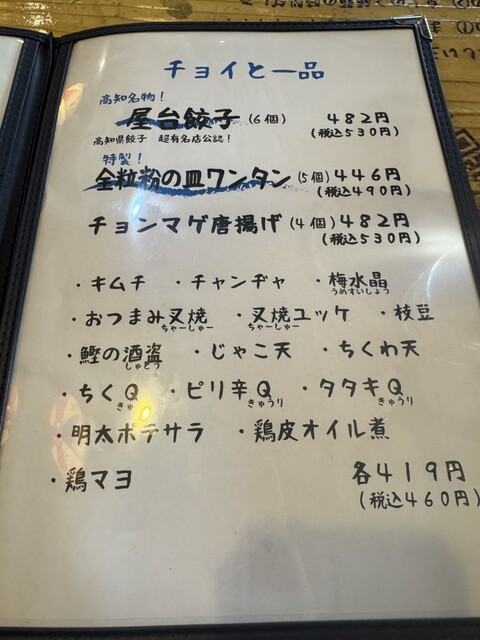 チョイと一品
高知名物！
屋台餃子（6個） 482円
（税込530円）
高知県餃子 超有名店公認！
特製！
全粒粉の皿ワンタン（5個）446円
（税込490円）
チョンマゲ唐揚げ（4個）482円
（税込530円）
・キムチ ・チャンヂャ ・梅水晶
うめすいしょう
・おつまみ叉焼 ・叉焼ユッケ ・枝豆
ちゃーしゅー ちゃーしゅー
・鰹の酒盗 ・じゃこ天 ・ちくわ天
しゅとう
・ちくQ ・ピリ辛Q ・タタキQ
きゅう きゅうり きゅうり
・明太ポテサラ ・鶏皮オイル煮
・鶏マヨ 各419円
（税込460円）